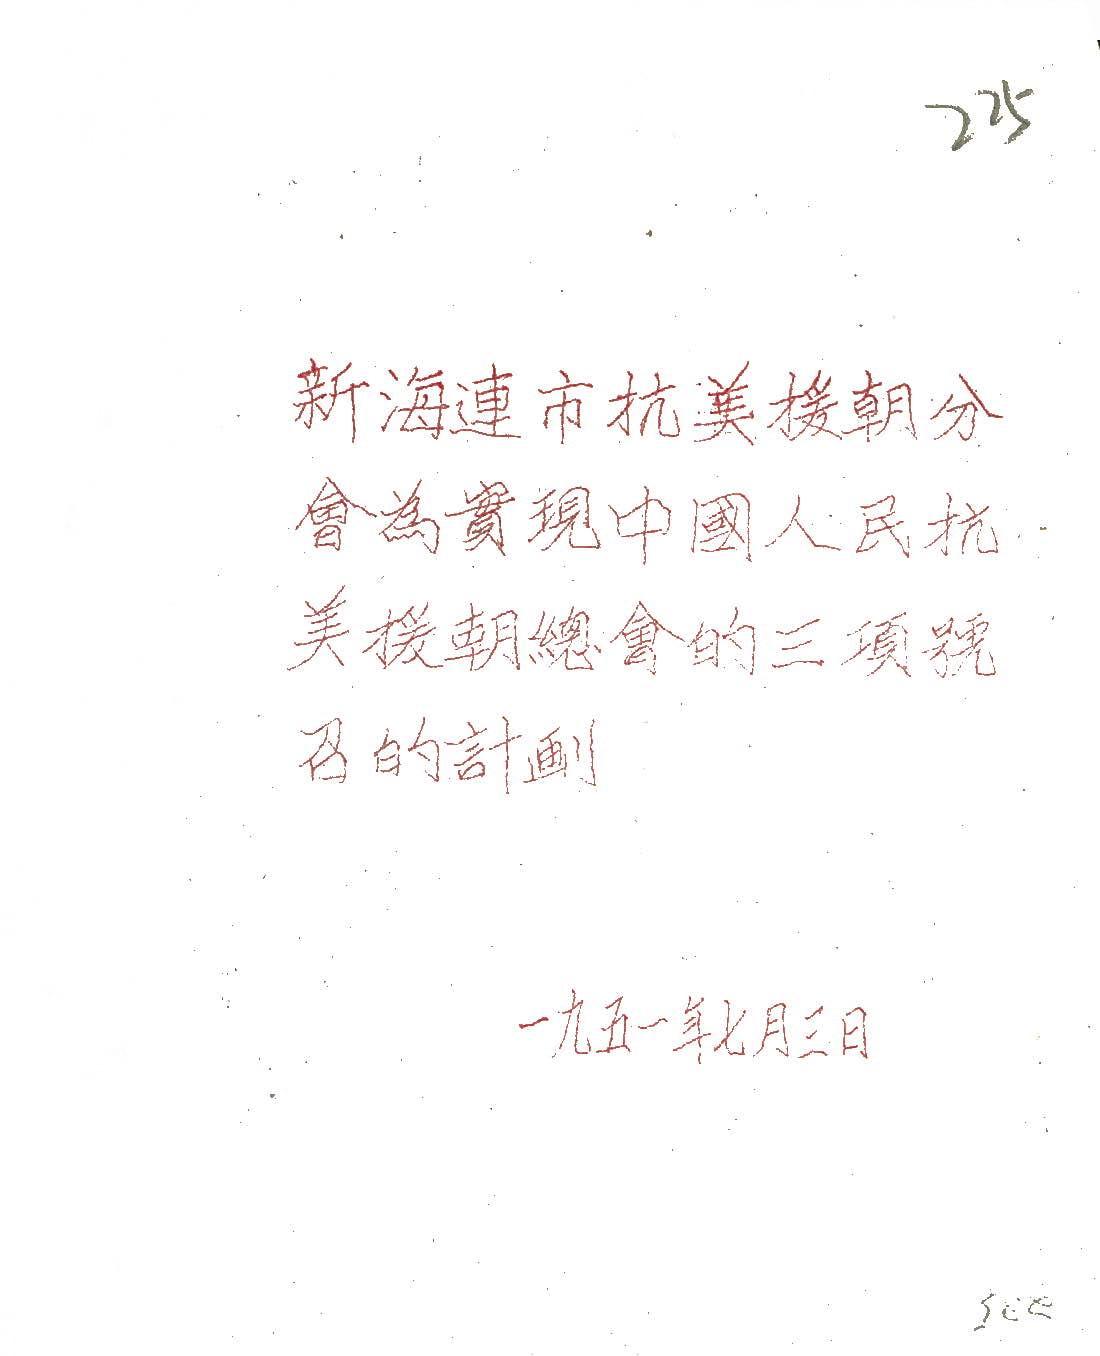 225
新海連市抗美援朝分
會為實現中國人民抗
美援朝總會的三項號
召的計劃
一九五一年七月三日